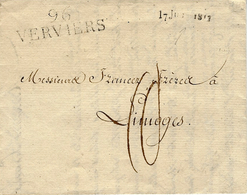 96
VERVIERS
17 JUI 1817
Messieurs France Frères à
Limoges.
10